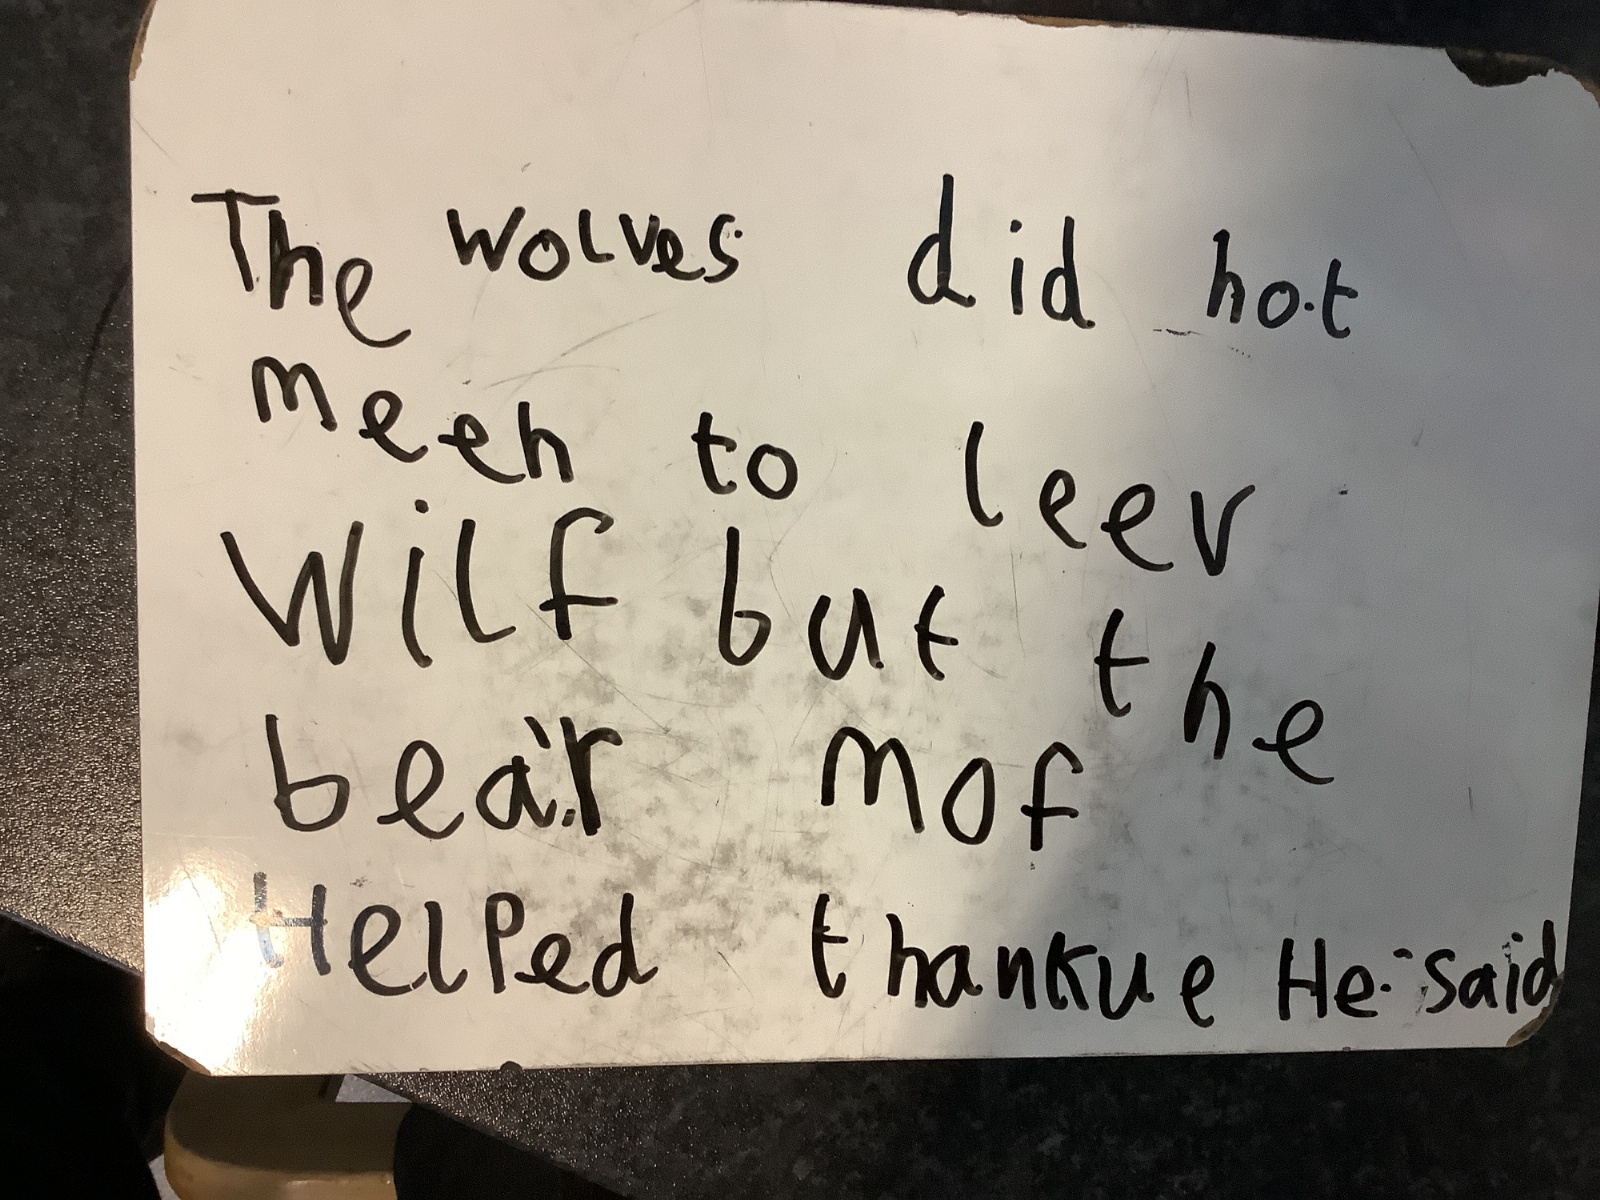 The wolves did not
meen to leev
Wilf but the
bear mof
Helped thankue He said